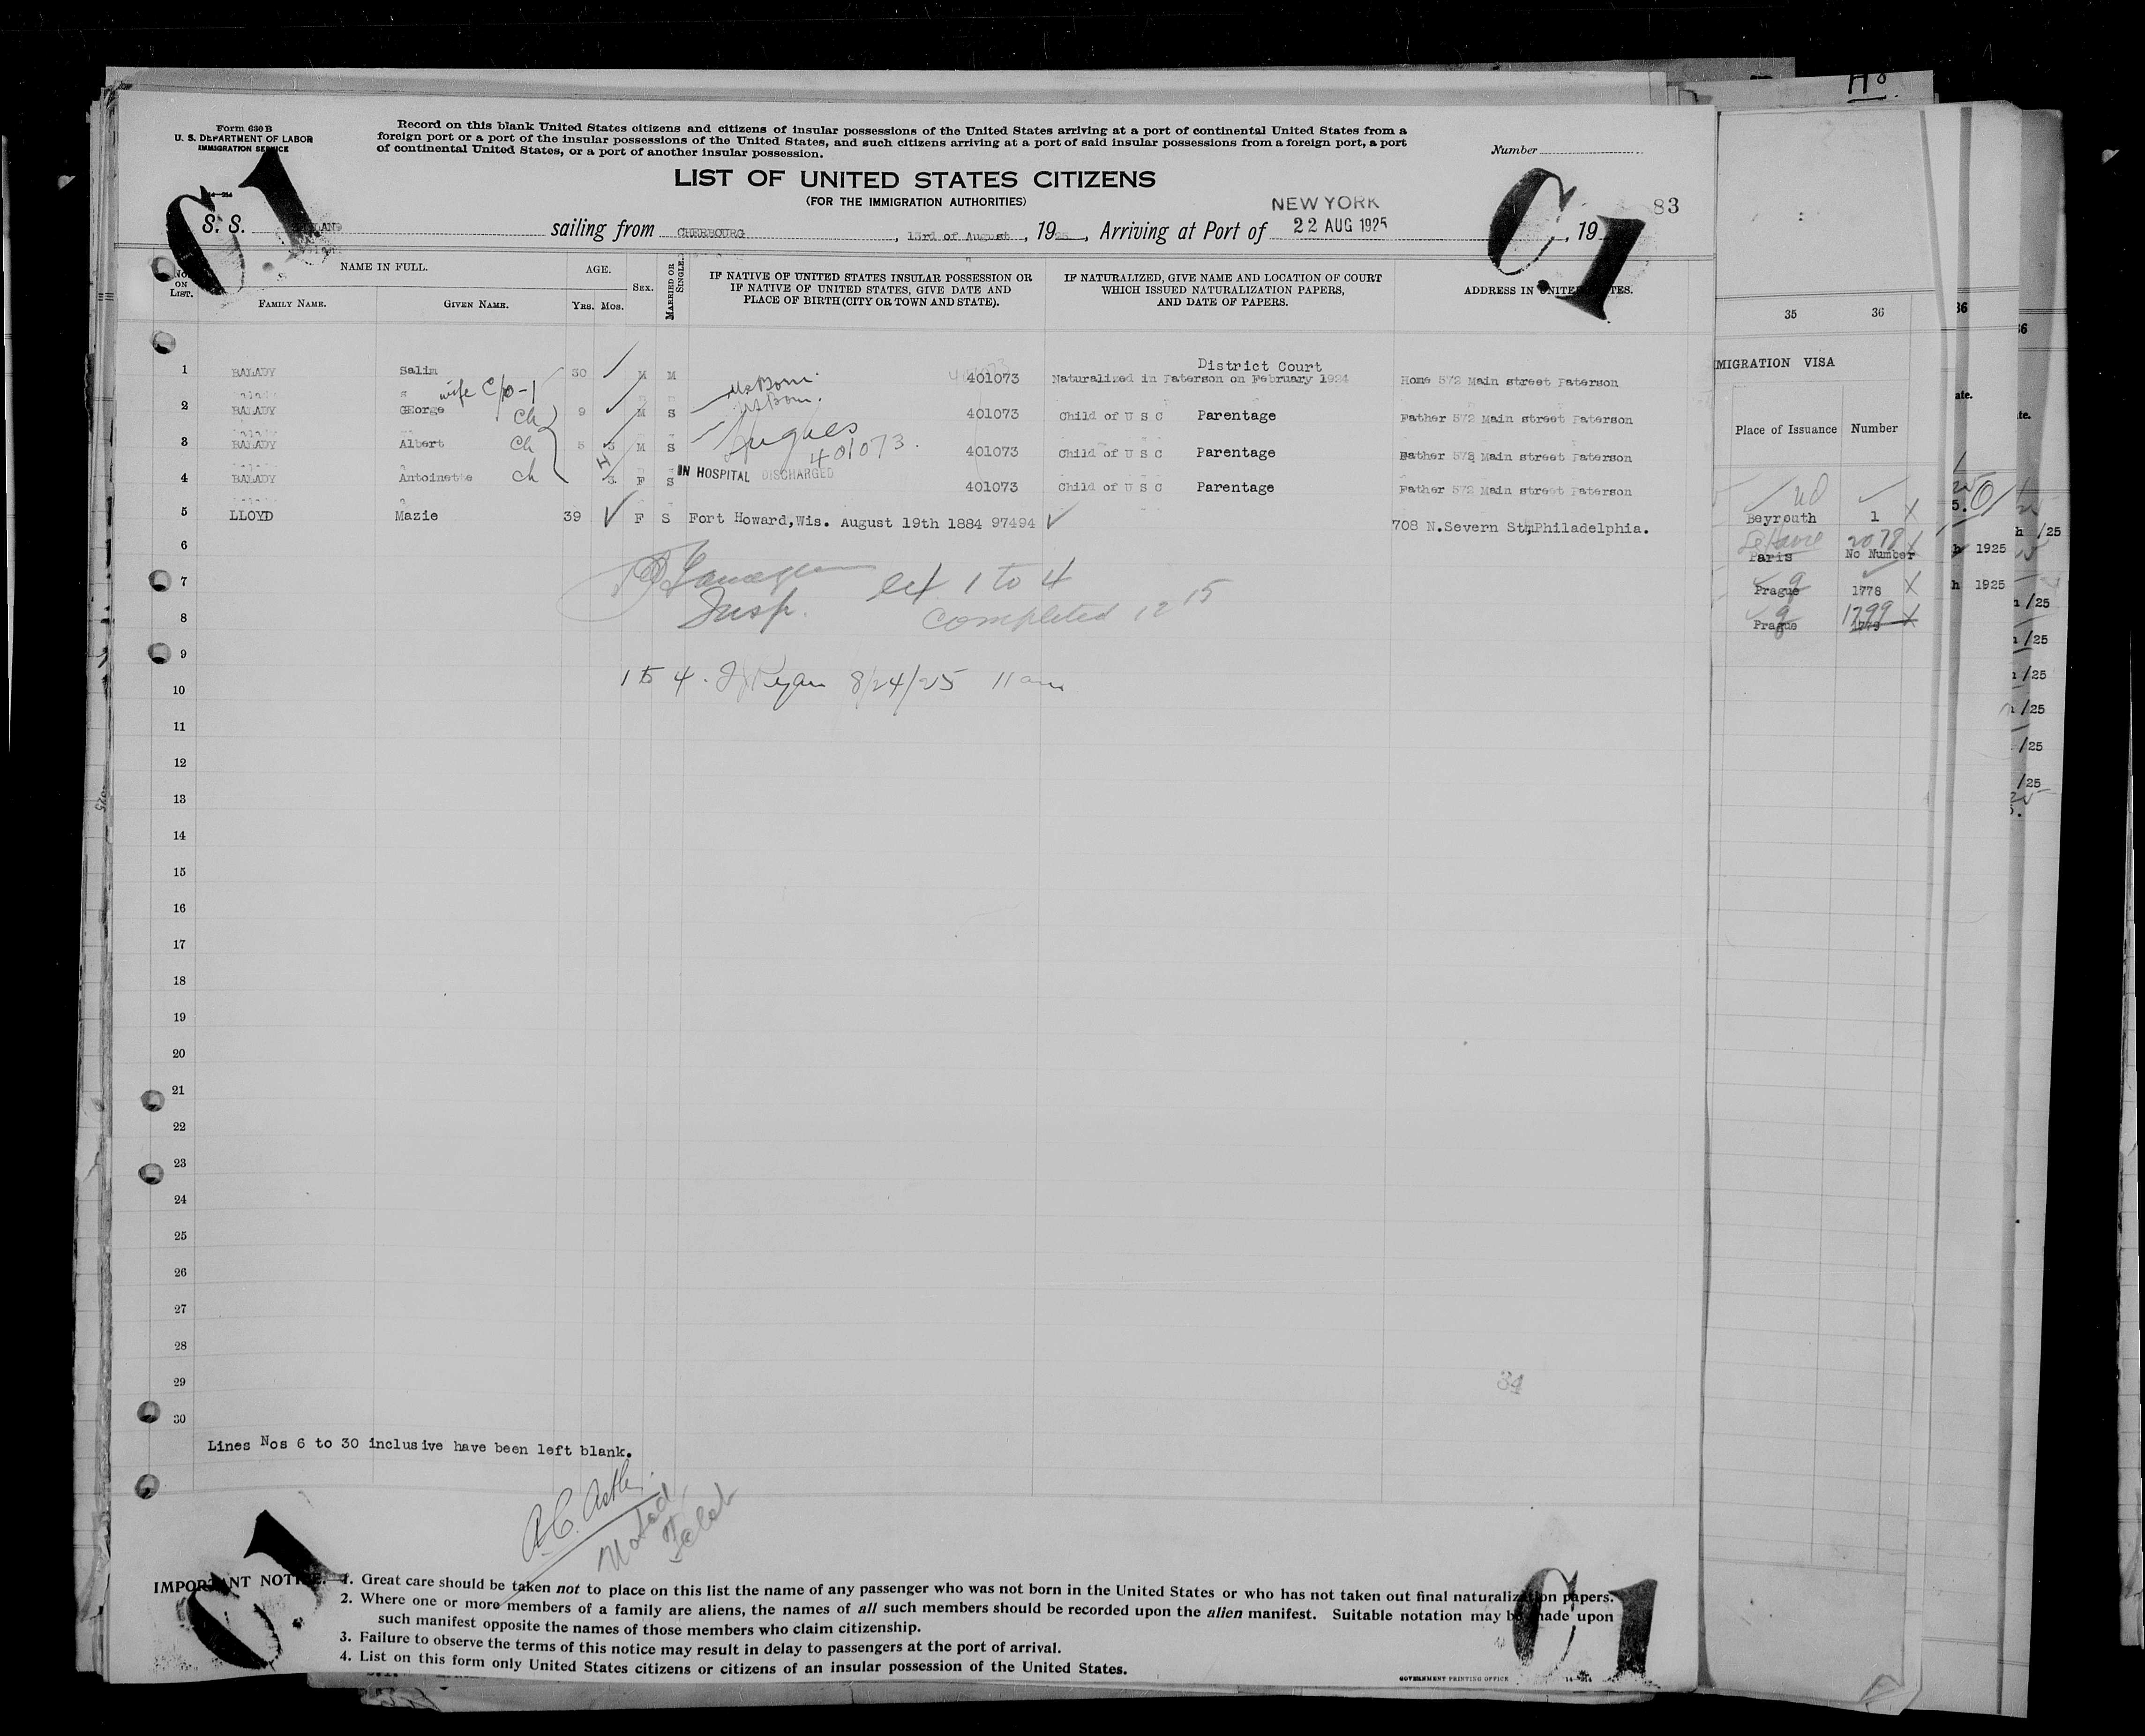 Form 630 B
U. S. DEPARTMENT OF LABOR
IMMIGRATION SERVICE
Record on this blank United States citizens and citizens of insular possessions of the United States arriving at a port of continental United States from a
foreign port or a port of the insular possessions of the United States, and such citizens arriving at a port of said insular possessions from a foreign port, a port
of continental United States, or a port of another insular possession.
Number
LIST OF UNITED STATES CITIZENS
(FOR THE IMMIGRATION AUTHORITIES)
C1
C1
83
S. S. sailing from CHERBOURG, 13rd of August, 19, Arriving at Port of NEW YORK 22 AUG 1925, 19
No. ON LIST.
NAME IN FULL.
FAMILY NAME.
GIVEN NAME.
AGE.
YRS. MOS.
SEX.
MARRIED OR SINGLE.
IF NATIVE OF UNITED STATES INSULAR POSSESSION OR
IF NATIVE OF UNITED STATES, GIVE DATE AND
PLACE OF BIRTH (CITY OR TOWN AND STATE).
IF NATURALIZED, GIVE NAME AND LOCATION OF COURT
WHICH ISSUED NATURALIZATION PAPERS,
AND DATE OF PAPERS.
ADDRESS IN UNITED STATES.
District Court
1 BALADY Salim 30 M M 401073 Naturalized in Paterson on February 1924 Home 572 Main street Paterson
wife C/o-1
US Born.
US Born.
2 BALADY GEorge Ch 9 M S 401073 Child of U S C Parentage Father 572 Main street Paterson
3 BALADY Albert Ch 5 3 M S 401073. 401073 Child of U S C Parentage Father 572 Main street Paterson
H
IN HOSPITAL DISCHARGED
4 BALADY Antoinette Ch 3 F S 401073 Child of U S C Parentage Father 572 Main street Paterson
5 LLOYD Mazie 39 F S Fort Howard,Wis. August 19th 1884 97494 708 N.Severn Sth,Philadelphia.
6
7 1 to 4
Insp. Completed 12 15
8
9
1 to 4. Ryan 8/24/25 11 am
10
11
12
13
14
15
16
17
18
19
20
21
22
23
24
25
26
27
28
29
34
30
Lines Nos 6 to 30 inclusive have been left blank.
Noted
C1
C1
IMPORTANT NOTICE.—1. Great care should be taken not to place on this list the name of any passenger who was not born in the United States or who has not taken out final naturalization papers.
2. Where one or more members of a family are aliens, the names of all such members should be recorded upon the alien manifest. Suitable notation may be made upon
such manifest opposite the names of those members who claim citizenship.
3. Failure to observe the terms of this notice may result in delay to passengers at the port of arrival.
4. List on this form only United States citizens or citizens of an insular possession of the United States.
GOVERNMENT PRINTING OFFICE
35 36
MIGRATION VISA
Place of Issuance Number
Beyrouth 1 X
2078
Paris No Number
Prague 1778 X
1799 X
Prague
36
ate.
1925
h 1925
36
te.
h /25
/25
/25
/25
/25
/25
/25